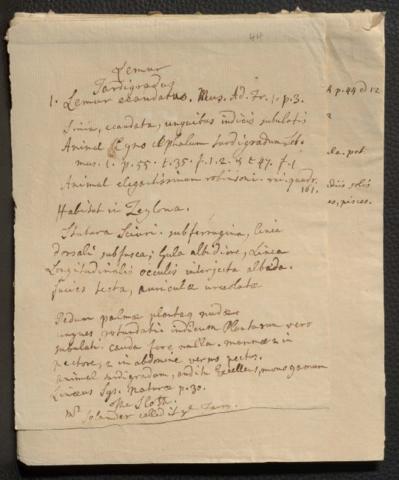 44
Lemur
Tardigradus
1. Lemur ecaudatus. Mus. Ad. Fr. 1. p. 3.
Simia, ecaudata, unguibus indicis subulatis
Animal Cynocephalum tardigradum, Seb.
mus. 1. p. 55. t. 35. f. 1. 2. & t. 47. f. 1
Animal elegantissimum robinsoni. raii. quadr.
161.
Habitat in Zeylona.
Statura Sciuri. subferrugina, linea
dorsali subfusca; Gula albidiore, Linea
Longitudinalis occulis interjecta albida.
facies tecta, auriculæ urceolatæ
Pedum palmæ plantæq nudæ
ungues rotundati indicum Plantarum vero
subulati cauda fere nulla. mammæ 2 in
pectore, 2 in abdomine versus pectus.
animal tardigradum, auditu Excellens, monogamum
Linæus Sys. Naturæ p. 30.
The Sloth.
Mr Solander called it ye
p. 44 d 12
pot.
solis
pisces.